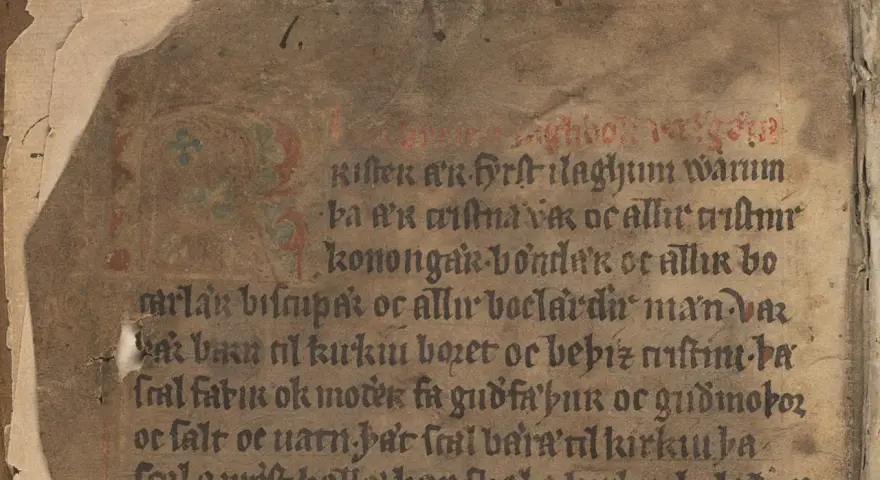 laghbok væsgöta
rister ær fyrst ilaghum warum
þa ær cristna var oc allir cristnir
konongær böndær oc allir bo
carlær biscupær oc allir boclærdir mæn. Var
þær barn til kirkiu boret oc beþiz cristnu. þa
scal faþir ok moþer fa gudfæþur oc gudmoþor
oc salt oc uatn. þæt scal bæræ til kirkiu þa